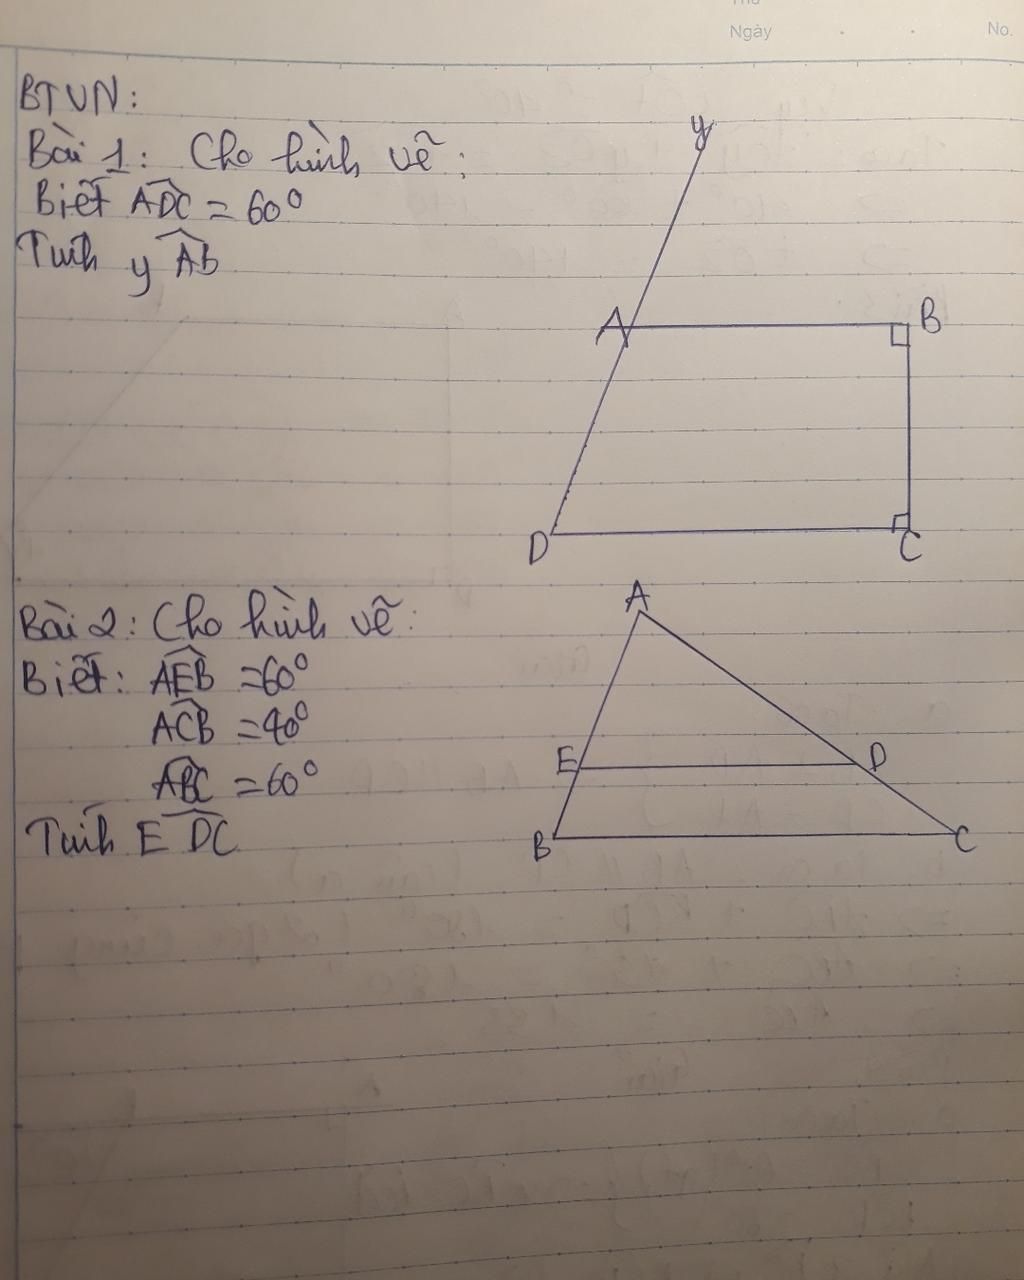 Thứ
Ngày
No.
BTVN:
Bài 1: Cho hình vẽ:
Biết ADC = 60°
Tính yAB
y
A
B
D
C
Bài 2: Cho hình vẽ:
Biết: AEB = 60°
ACB = 40°
ABC = 60°
Tính EDC
A
E
D
B
C